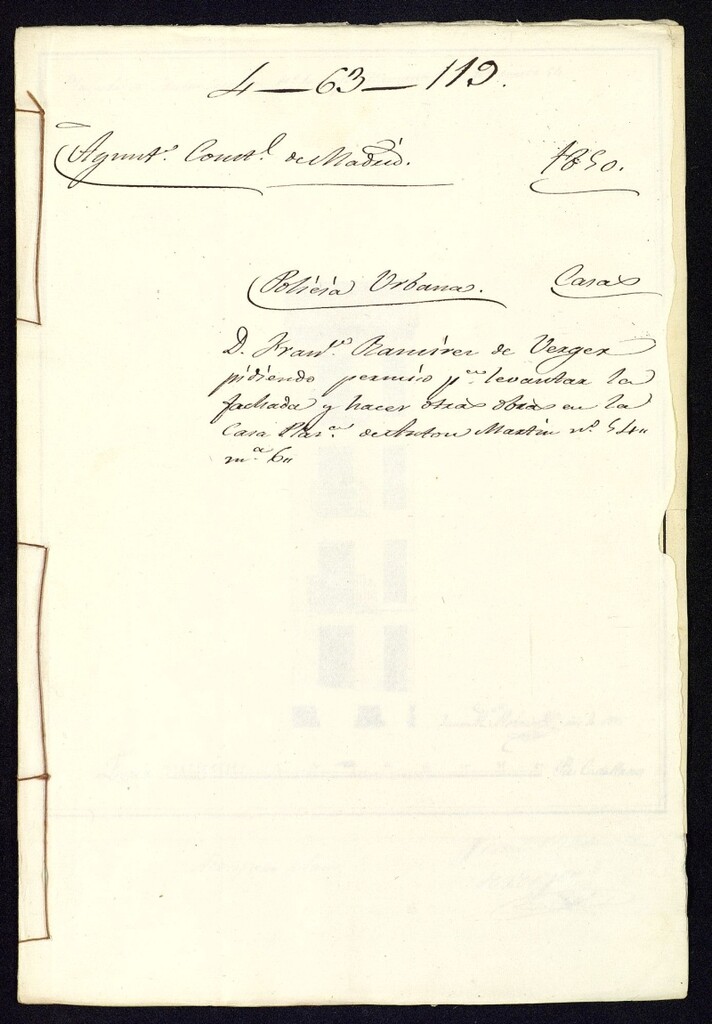 4 — 63 — 119.
Ayunt.o Const.l de Madrid. 1850.
Policia Urbana. Casas
D. Fran.co Ramirez de Verger
pidiendo permiso p.a levantar la
fachada y hacer otras obras en la
Casa Plaz.a de Anton Martin n.o 54"
m.a 6"